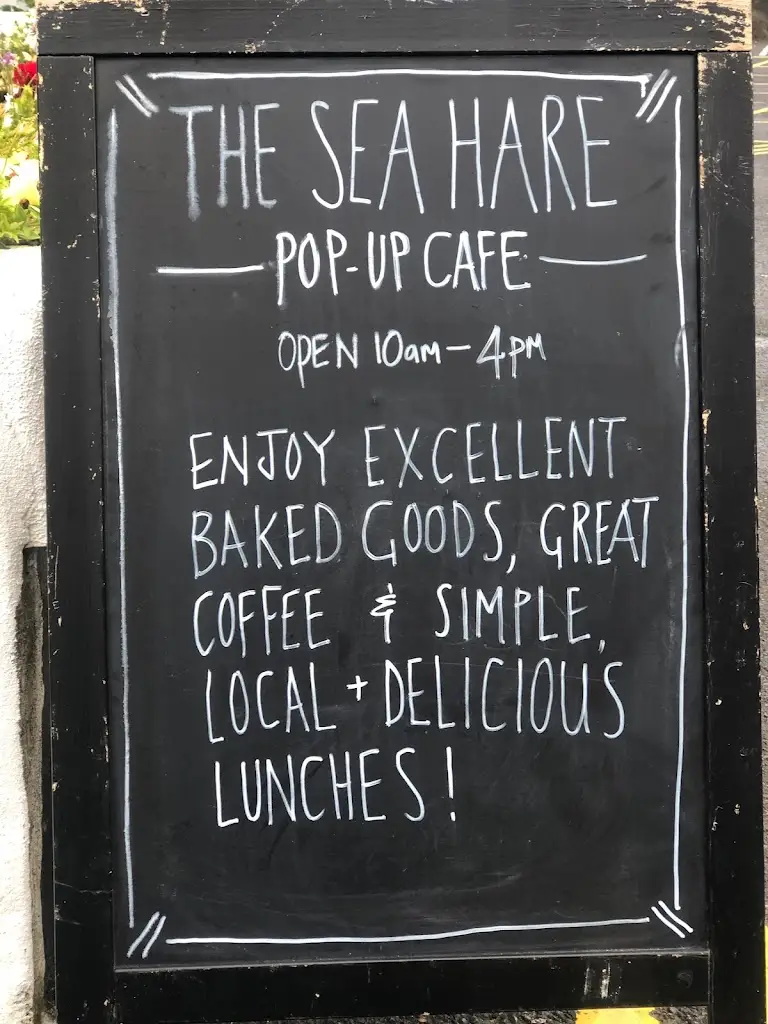 THE SEA HARE
POP-UP CAFE
OPEN 10am - 4pm
ENJOY EXCELLENT
BAKED GOODS, GREAT
COFFEE & SIMPLE,
LOCAL + DELICIOUS
LUNCHES!